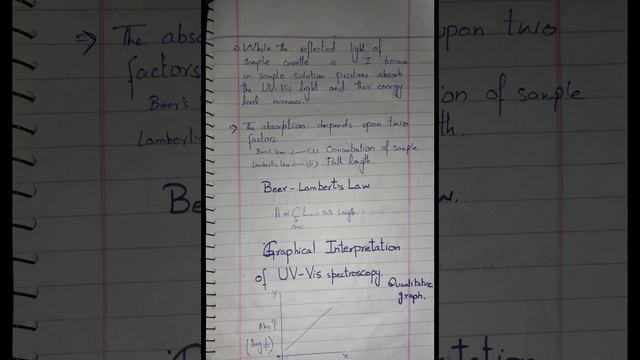 ⇒ While the reflected light of
sample cuvette is I because
in sample solution protons absorb
the UV-Vis light and their energy
level increases.
⇒ The absorption depends upon two
factors.
Beer's law ← (i) Concentration of sample
Lambert's law ← (ii) Path length
Beer-Lambert's Law.
A ∝ C L → Path length
Conc
Graphical Interpretation
of UV-Vis spectroscopy.
Quantitative
graph.
Y
Abs ↑
X